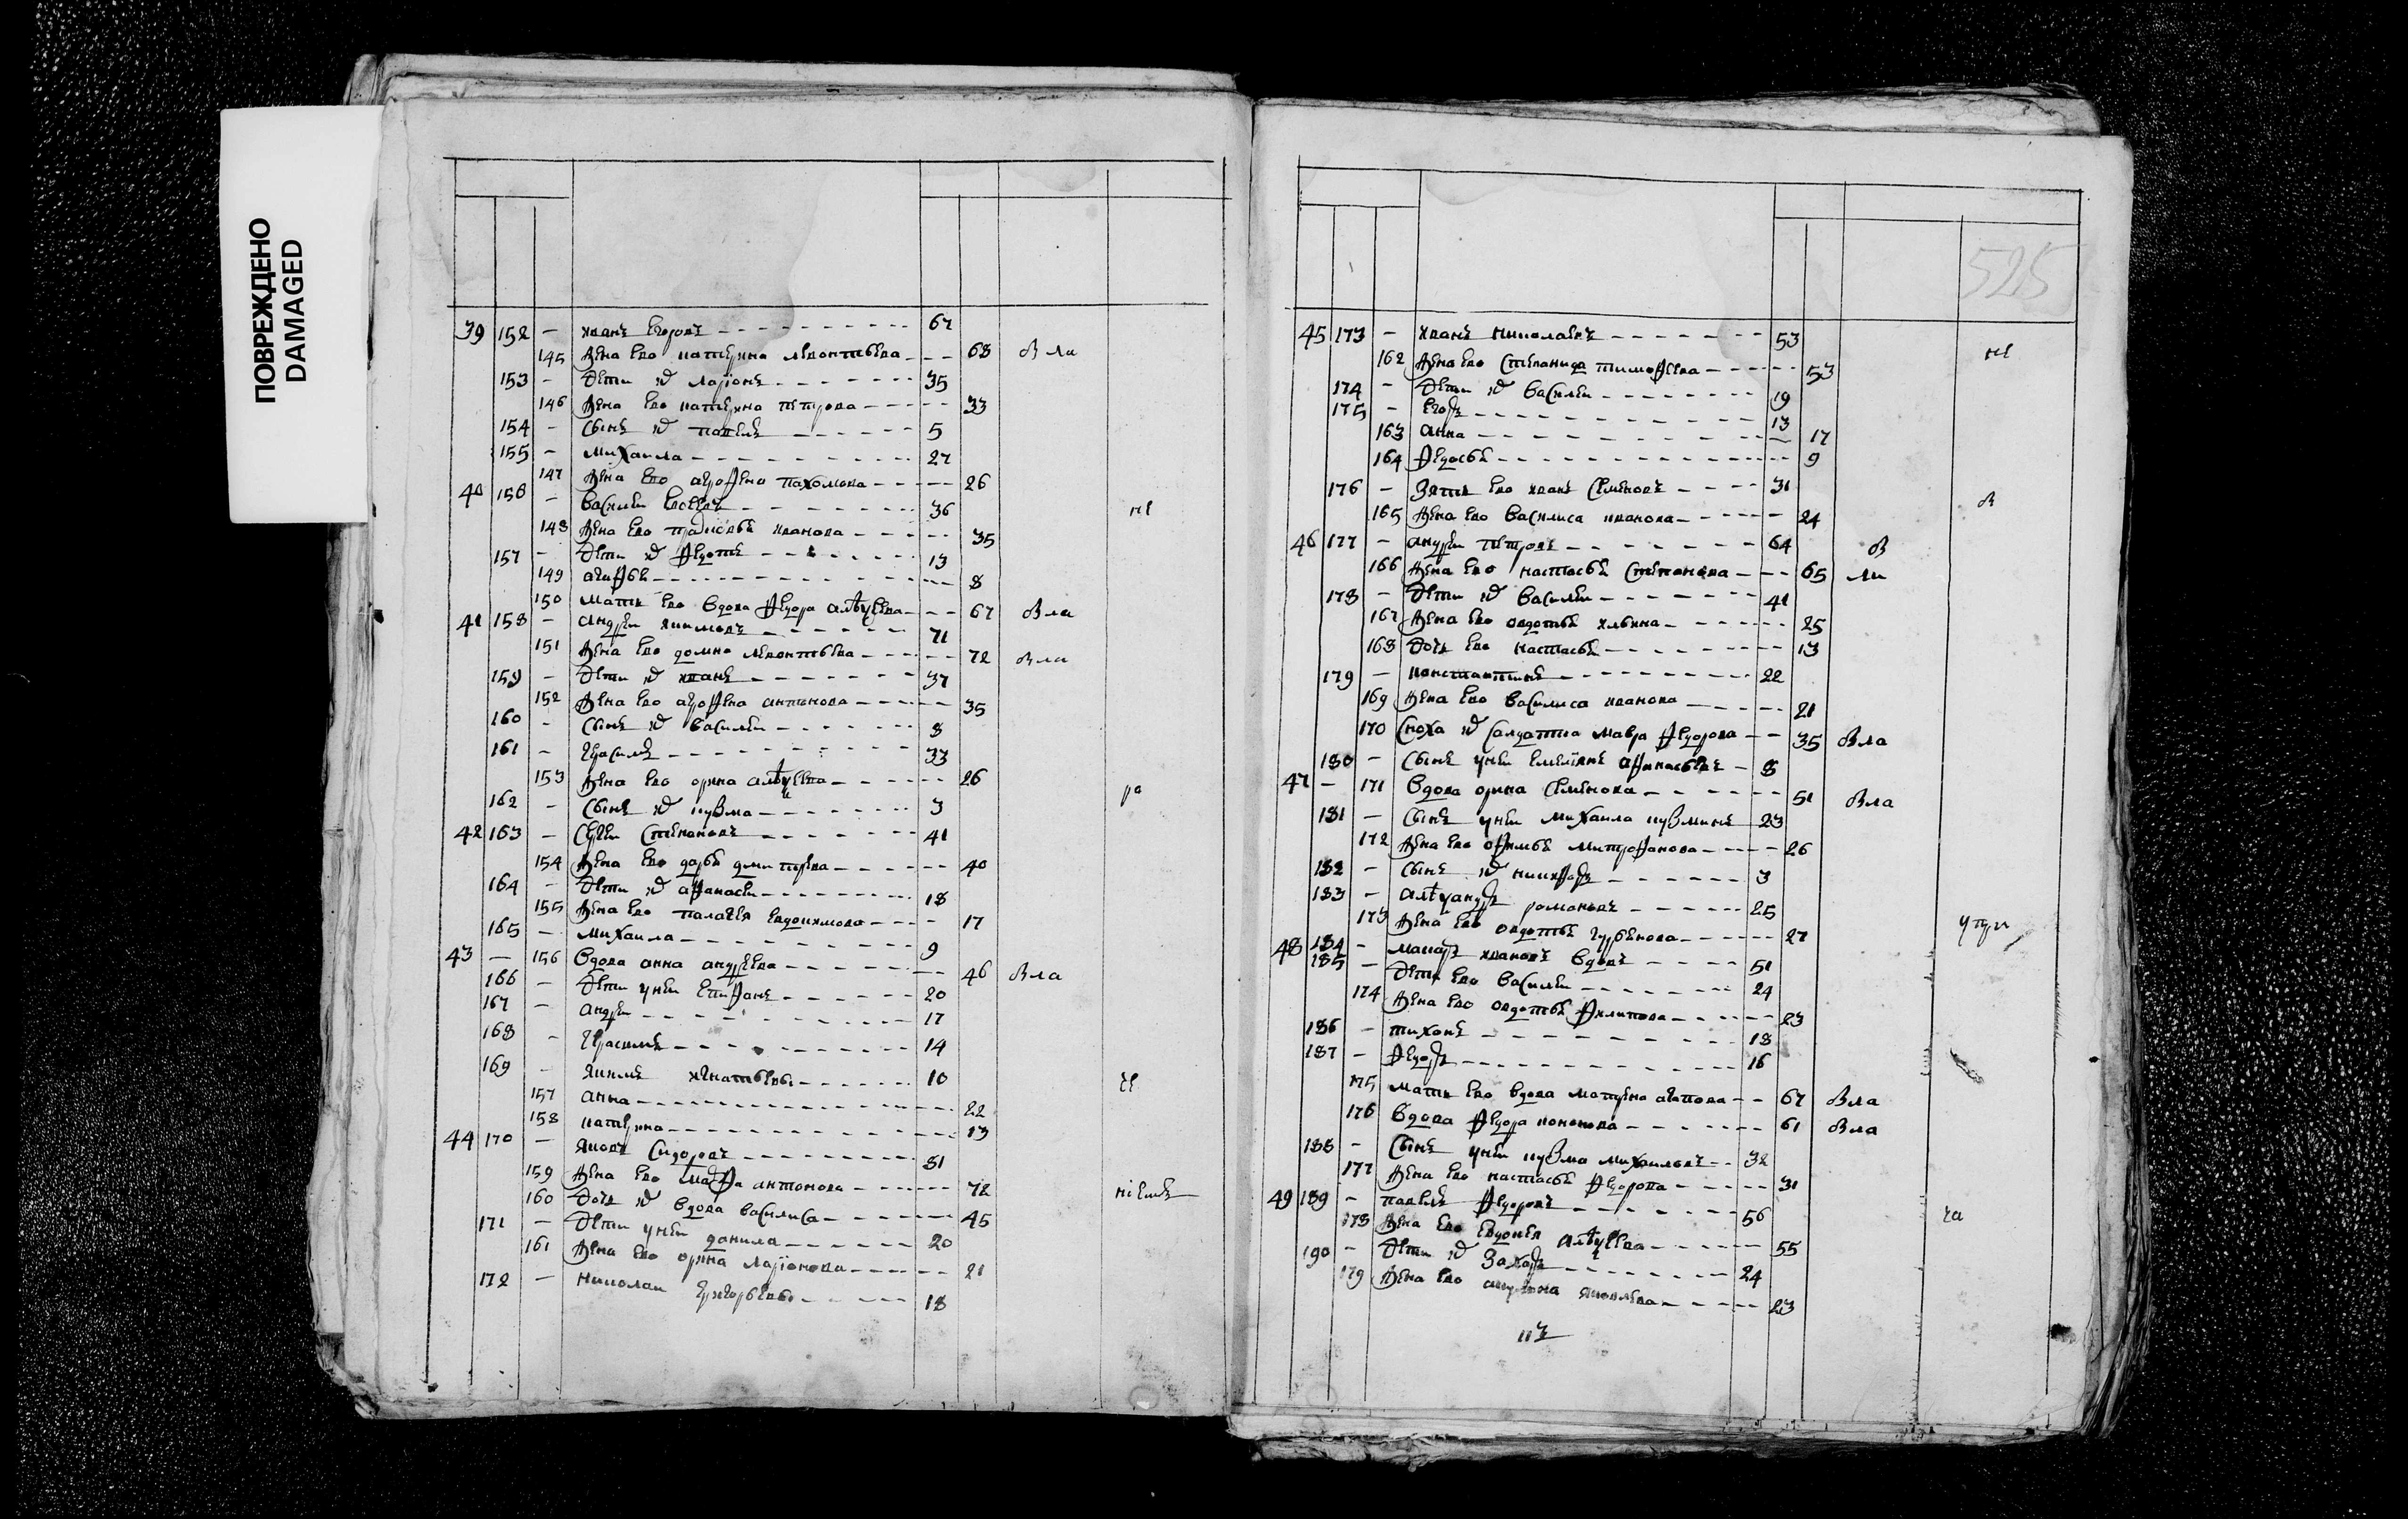 ПОВРЕЖДЕНО
DAMAGED
39 152 – иванъ егоровъ 67
145 жена ево катерина левонтьева 68 вла
153 – дети их ларіонъ 35
146 жена ево катерина петрова 33
154 – сынъ их павелъ 5
155 – михаила 27
147 жена ево аграфена пахомова 26
40 156 – василеи 36 не
148 жена ево иванова 35
157 – дети их 13
149 агафья 8
150 мать ево вдова федора алѣѯеева 67 вла
41 158 – андреи якимовъ 71
151 жена ево домна левонтьева 72 вла
159 – дети их иванъ 37
152 жена ево аграфена антонова 35
160 – сынъ их василеи 8
161 – герасимъ 33
153 жена ево орина алѣѯеева 26
162 – сынъ их кузма 3 ро
42 163 – сергеи степановъ 41
154 жена ево дарья дмитрева 40
164 – дети их афанасеи 18
155 жена ево палагея евдокимова 17
165 – михаила 9
43 – 156 вдова анна андреева 46 вла
166 – дети у неи епифанъ 20
167 – андреи 17
168 – герасимъ 14
169 – якимъ игнатьевы 10
157 анна 22
158 катерина 13
44 170 – яковъ сидоровъ 81
159 жена ево марфа антонова 72
160 дочь их вдова василиса 45
171 – дети у неи данила 20
161 жена ево орина ларіонова 21
172 – николаи григорьевы 18
525
45 173 – иванъ николаевъ 53
162 жена ево степанида тимофеева 53 не
174 – дети их василеи 19
175 – егоръ 13
163 анна 17
164 федосья 9
176 – зять ево иванъ семеновъ 31
165 жена ево василиса иванова 24 в
46 177 – андреи петровъ 64 в
166 жена ево настасья степанова 65 ла
178 – дети их василеи 41
167 жена ево овдотья ильина 25
168 дочь ево настасья 13
179 – константинъ 22
169 жена ево василиса иванова 21
170 сноха их салдатка мавра федорова 35 вла
180 – сынъ у неи емеліянъ афанасьевъ 8
47 – 171 вдова орина семенова 51 вла
181 – сынъ у неи михаила кузминъ 23
172 жена ево офимья митрофанова 26
182 – сынъ их никифоръ 3
183 – алѣѯандръ романовъ 25
173 жена ево овдотья гурьенова 27
48 184 – макаръ ивановъ вдовъ 51
185 – дети ево василеи 24
174 жена ево овдотья филипова 23
186 – тихонъ 18
187 – федоръ 16
175 мать ево вдова матрена агапова 67 вла
176 вдова федора кононова 61 вла
188 – сынъ у неи кузма михаиловъ 32
177 жена ево настасья федорова 31
49 189 – павелъ федоровъ 56
178 жена ево евдокея алѣѯеева 55
190 – дети их захаръ 24
179 жена ево яковлева 23